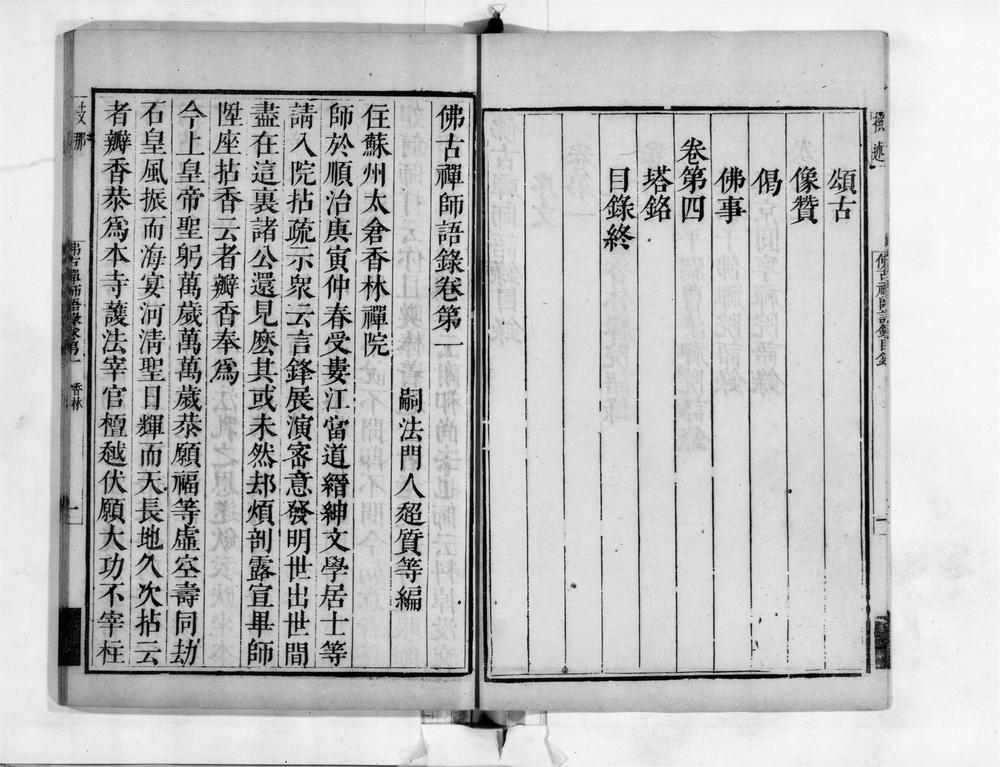 頌古
像贊
偈
佛事
卷第四
塔銘
目錄終
佛古禪師語錄目錄
一
佛古禪師語錄卷第一
嗣法門人超質等編
住蘇州太倉香林禪院
師於順治庚寅仲春受婁江當道縉紳文學居士等
請入院拈疏示衆云言鋒展演審意發明世出世間
盡在這裏諸公還見麽其或未然却煩剖露宣畢師
陞座拈香云者瓣香奉爲
今上皇帝聖躬萬歲萬萬歲恭願福等虛空壽同劫
石皇風振而海宴河清聖日輝而天長地久次拈云
者瓣香恭爲本寺護法宰官檀越伏願大功不宰柱
佛古禪師語錄卷第一
香林
一